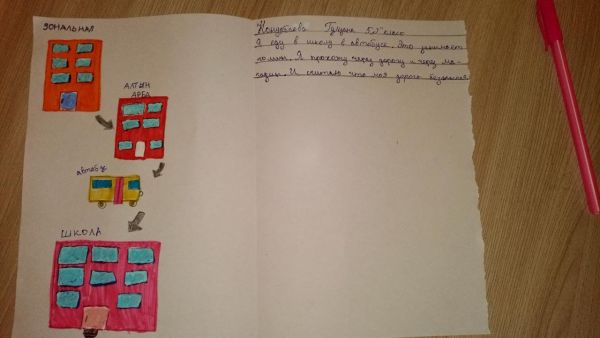 ЗОНАЛЬНАЯ
АЛТЫН
АРБА
автобус
ШКОЛА
5 класс
Я еду в школу в автобусе. Это занимает
Я прохожу через дорогу и через ма-
. И считаю что моя дорога безопасная.